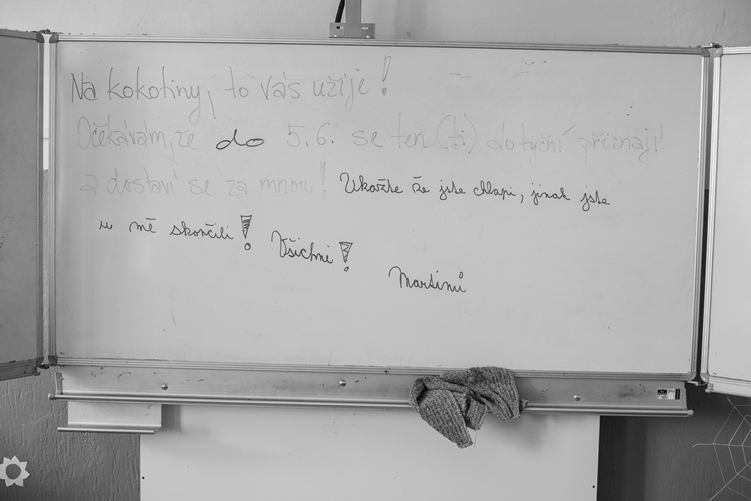 Na kokotiny, to vás užije!
Očekávám, že do 5.6. se ten (ti) dotyční přiznají
a dostaví se za mnou! Ukažte že jste chlapi, jinak jste
u mě skončili! Všichni!
Martinů